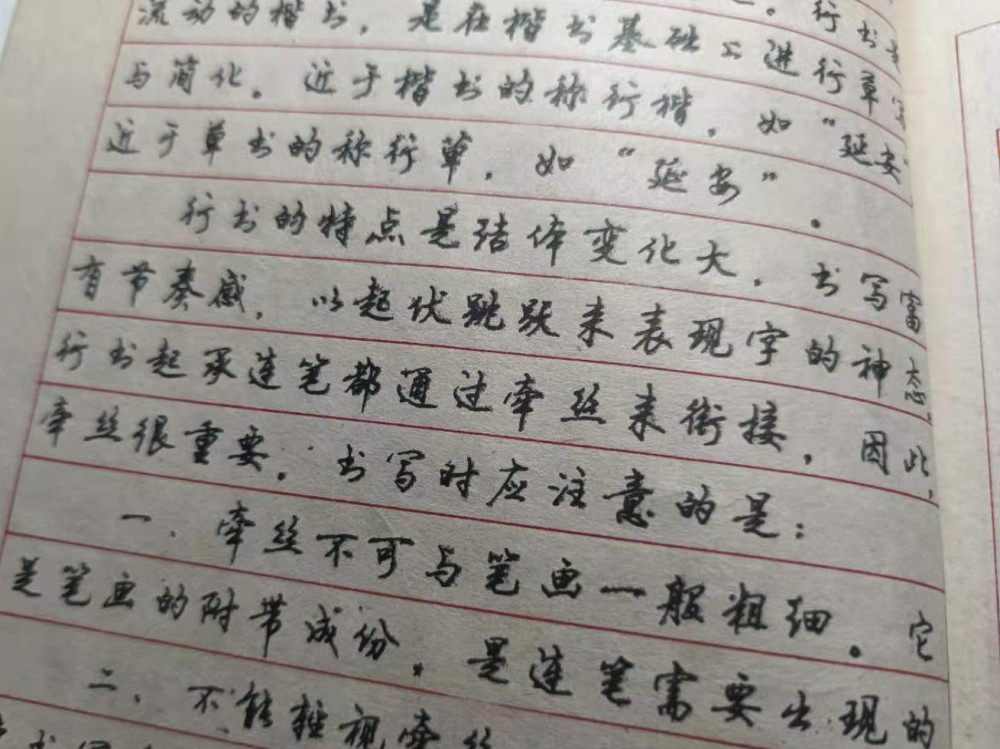 流动的楷书，是在楷书基础上进行草写
与简化。近于楷书的称行楷，如“延安”
近于草书的称行草，如“延安”。
行书的特点是结体变化大，书写富
有节奏感，以起伏跳跃来表现字的神态。
行书起承连笔都通过牵丝来衔接，因此，
牵丝很重要。书写时应注意的是：
一、牵丝不可与笔画一般粗细。它
是笔画的附带成份，是连笔需要出现的
二、不能轻视牵丝